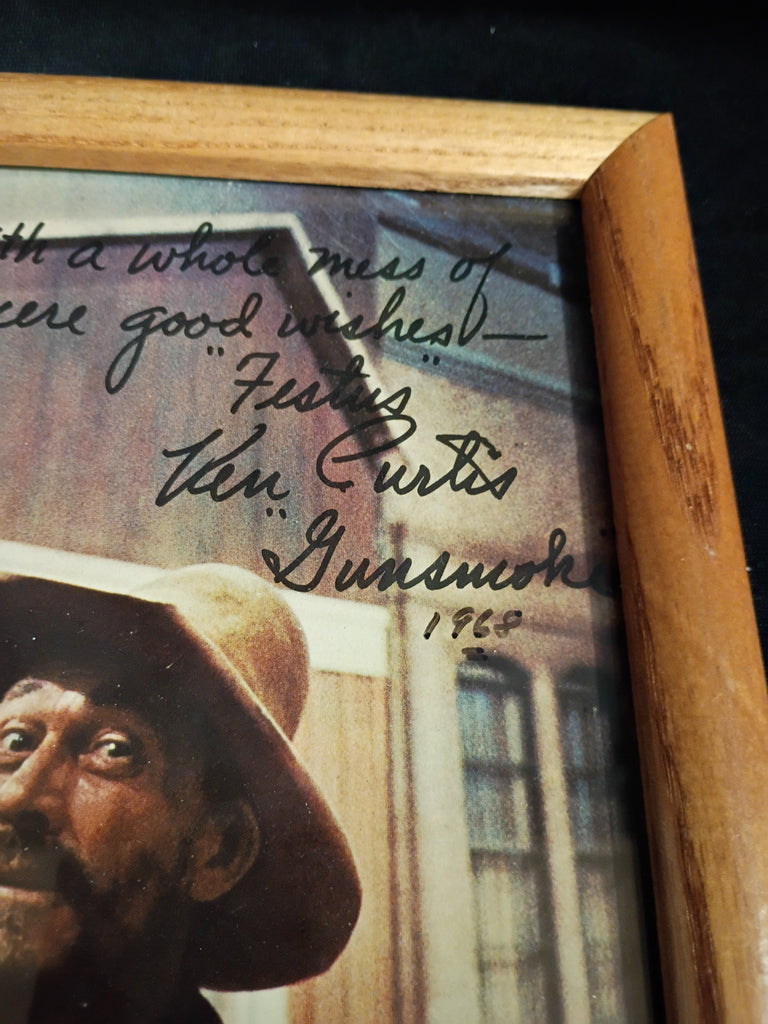 th a whole mess of
cere good wishes —
"Festus"
Ken Curtis
"Gunsmoke
1968